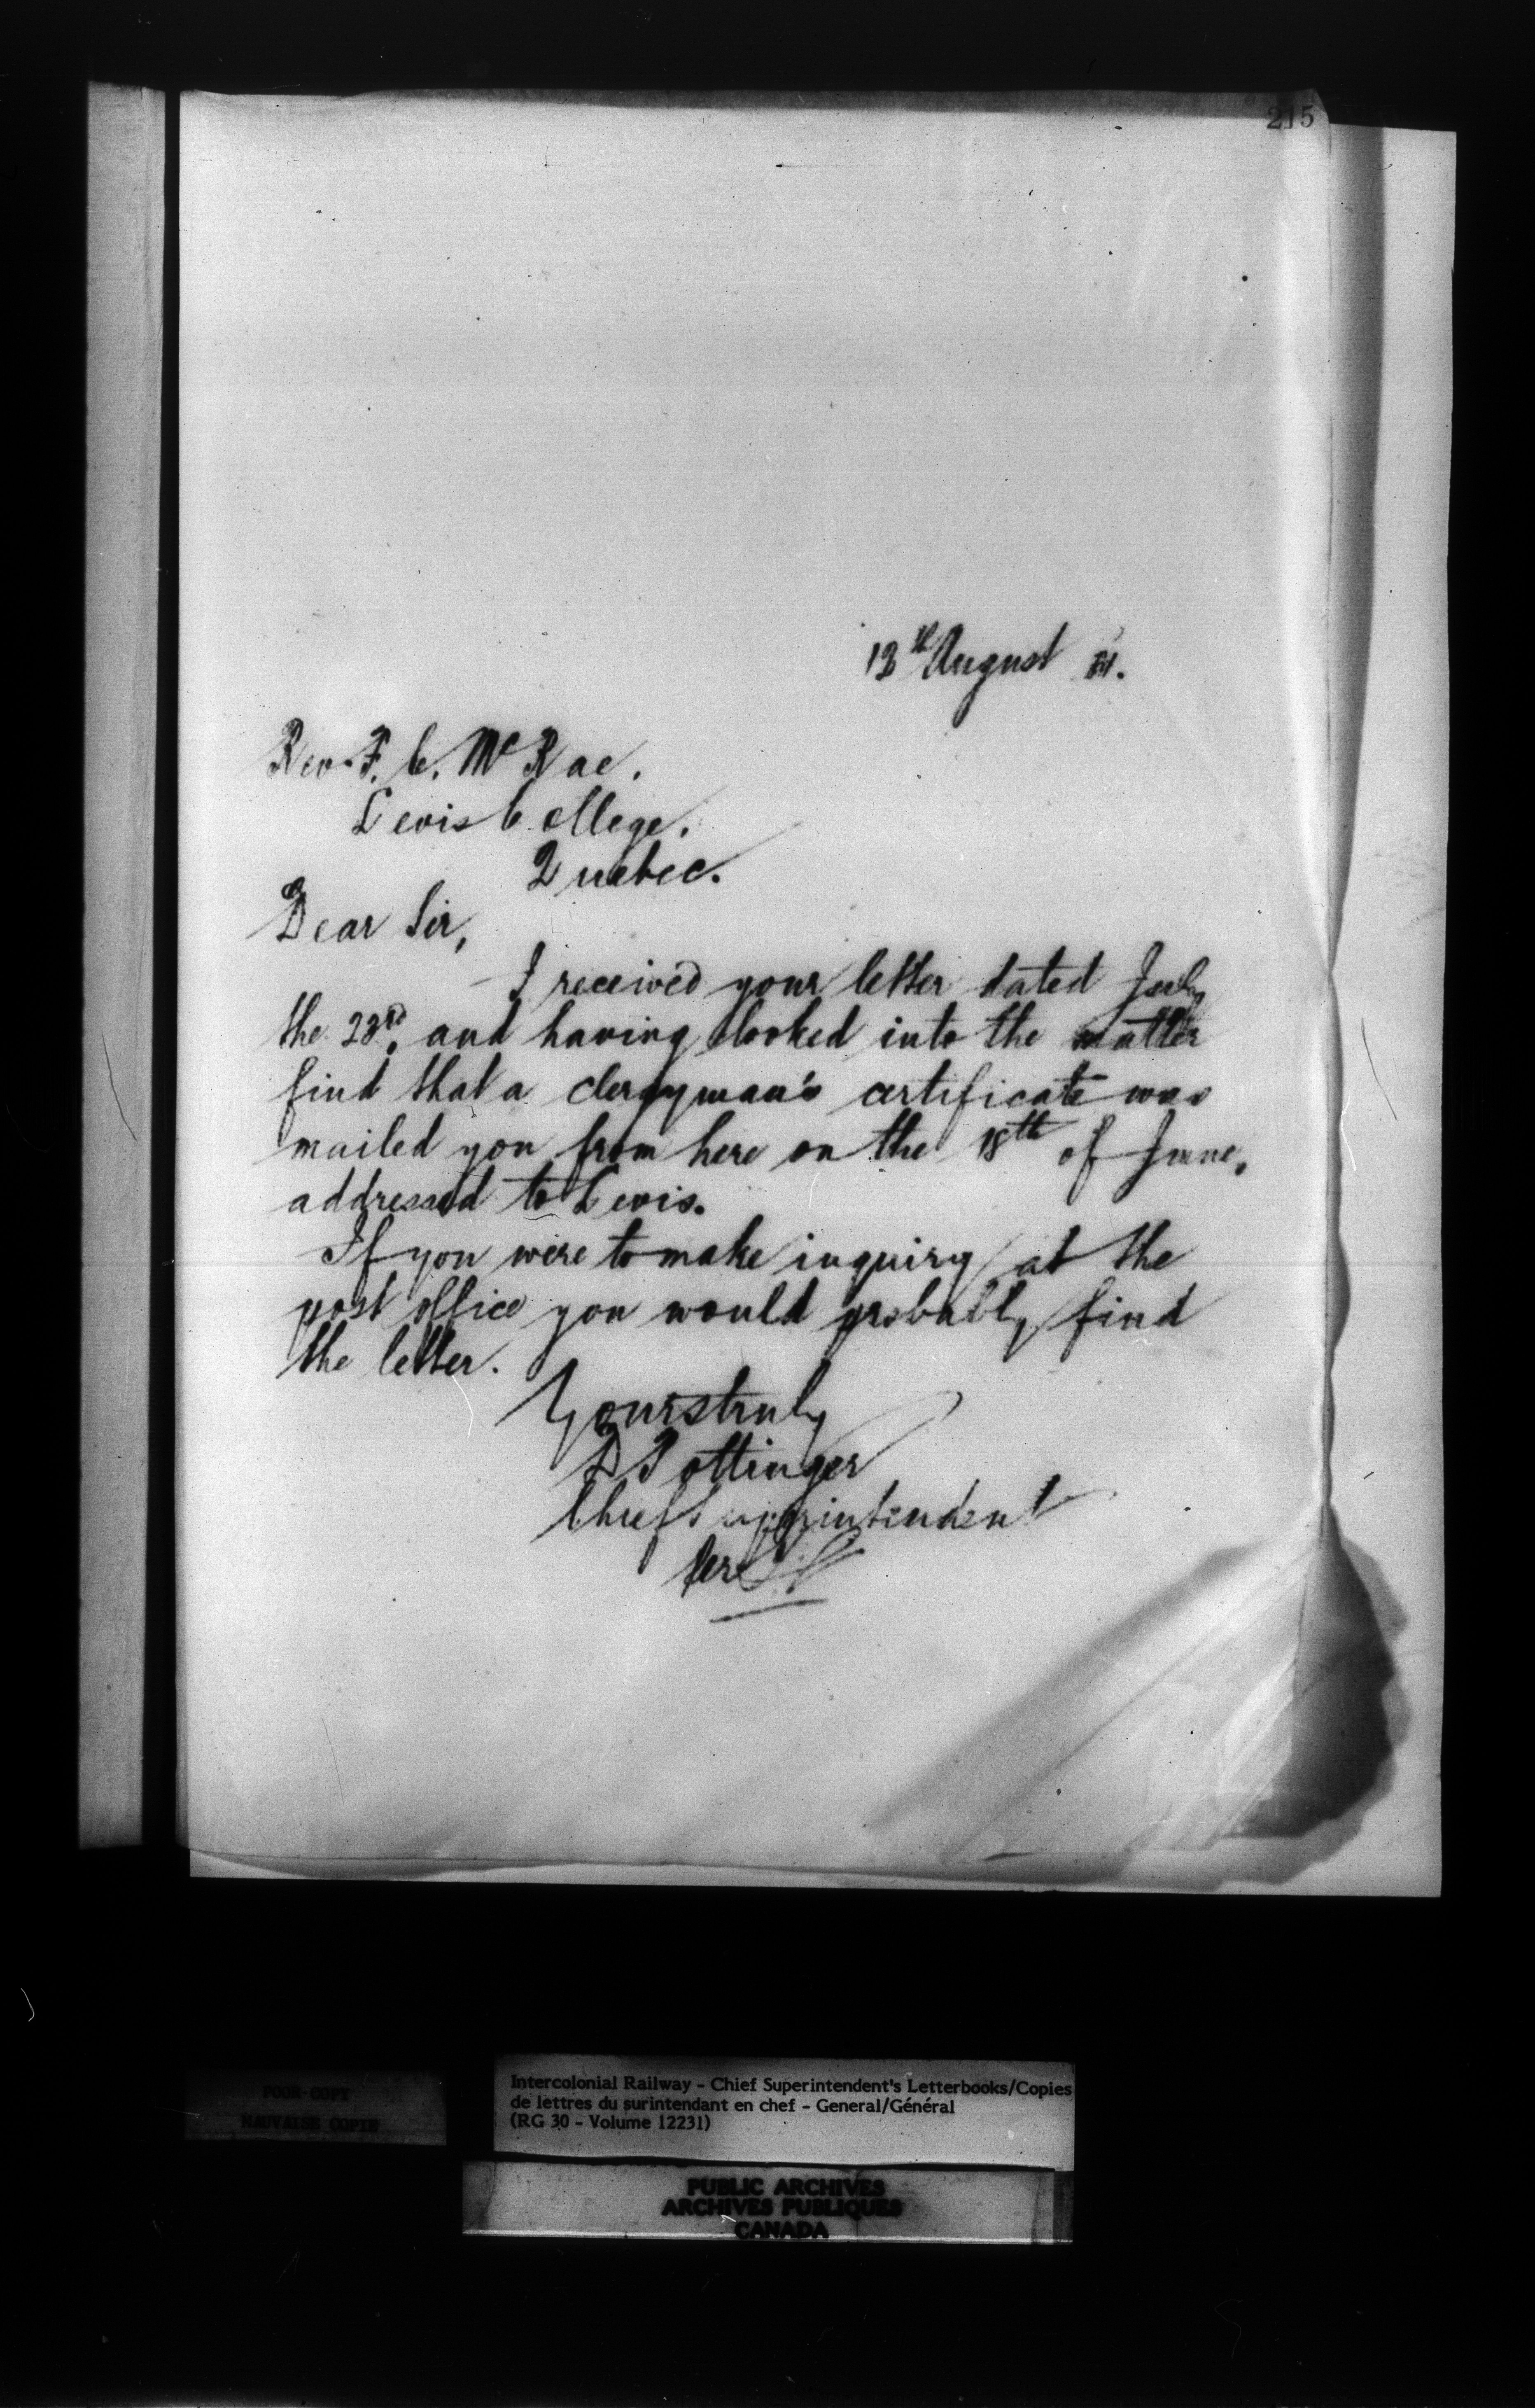 215
13th August 81.
Rev. F. C. McRae.
Levis College.
Quebec.
Dear Sir,
I received your letter dated July
the 23rd, and having looked into the matter
find that a clergyman's certificate was
mailed you from here on the 18th of June,
addressed to Levis.
If you were to make inquiry at the
post office you would probably find
the letter.
Yours truly
D Pottinger
Chief Superintendent
Per
POOR COPY
MAUVAISE COPIE
Intercolonial Railway - Chief Superintendent's Letterbooks/Copies
de lettres du surintendant en chef - General/Général
(RG 30 - Volume 12231)
PUBLIC ARCHIVES
ARCHIVES PUBLIQUES
CANADA